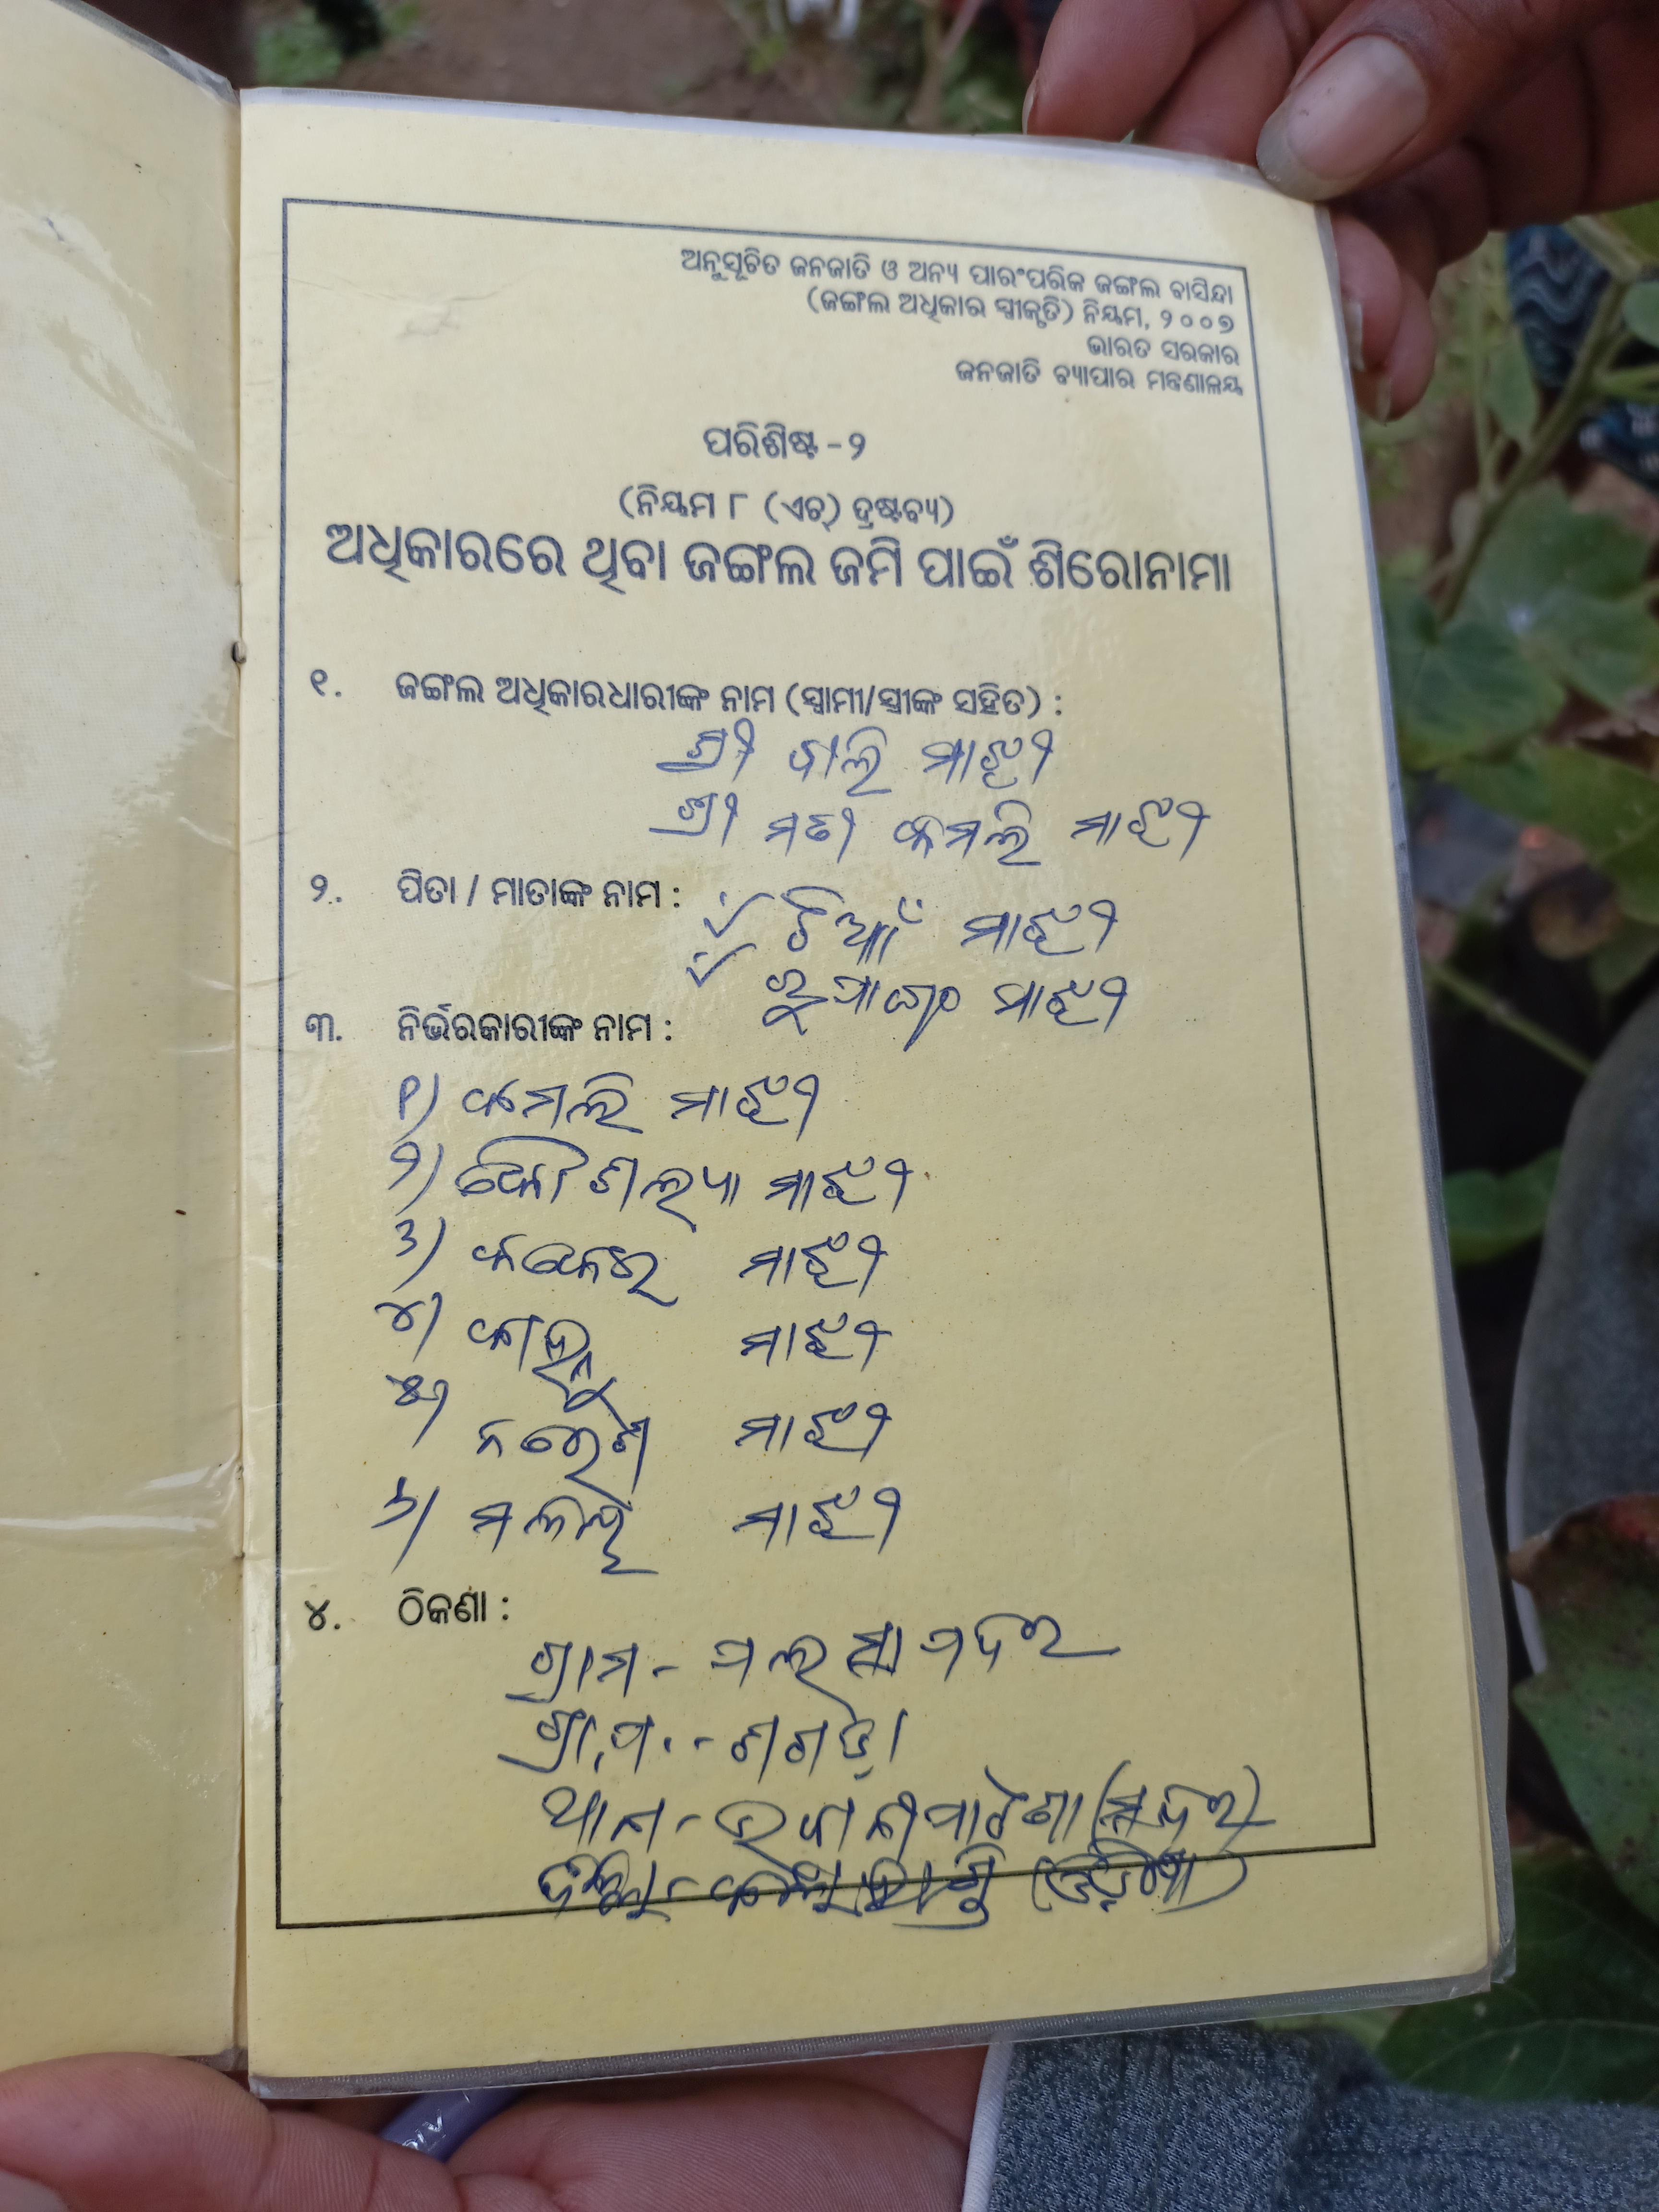 ଅନୁସୂଚିତ ଜନଜାତି ଓ ଅନ୍ୟ ପାରଂପରିକ ଜଙ୍ଗଲ ବାସିନ୍ଦା
(ଜଙ୍ଗଲ ଅଧିକାର ସ୍ୱୀକୃତି) ନିୟମ, ୨୦୦୭
ଭାରତ ସରକାର
ଜନଜାତି ବ୍ୟାପାର ମନ୍ତ୍ରଣାଳୟ
ପରିଶିଷ୍ଟ - ୨
(ନିୟମ ୮ (ଏଚ୍) ଦ୍ରଷ୍ଟବ୍ୟ)
ଅଧିକାରରେ ଥିବା ଜଙ୍ଗଲ ଜମି ପାଇଁ ଶିରୋନାମା
୧. ଜଙ୍ଗଲ ଅଧିକାରଧାରୀଙ୍କ ନାମ (ସ୍ୱାମୀ/ସ୍ତ୍ରୀଙ୍କ ସହିତ) :
ଶ୍ରୀ ବାଲି ମାଝୀ
ଶ୍ରୀ ମତୀ କମଲି ମାଝୀ
୨. ପିତା / ମାତାଙ୍କ ନାମ :
ମାଝୀ
ମାଝୀ
୩. ନିର୍ଭରକାରୀଙ୍କ ନାମ :
୧) କମଲି ମାଝୀ
୨) କୌଶଲ୍ୟା ମାଝୀ
୩) ମାଝୀ
୪) ମାଝୀ
୫) ନରେଶ ମାଝୀ
୬) ମାଝୀ
୪. ଠିକଣା :
ଗ୍ରାମ -
ଗ୍ରା.ପ. -
ଥାନା - ଭବାନୀପାଟଣା (ସଦର)
ଜିଲ୍ଲା - କଳାହାଣ୍ଡି (ଓଡ଼ିଶା)